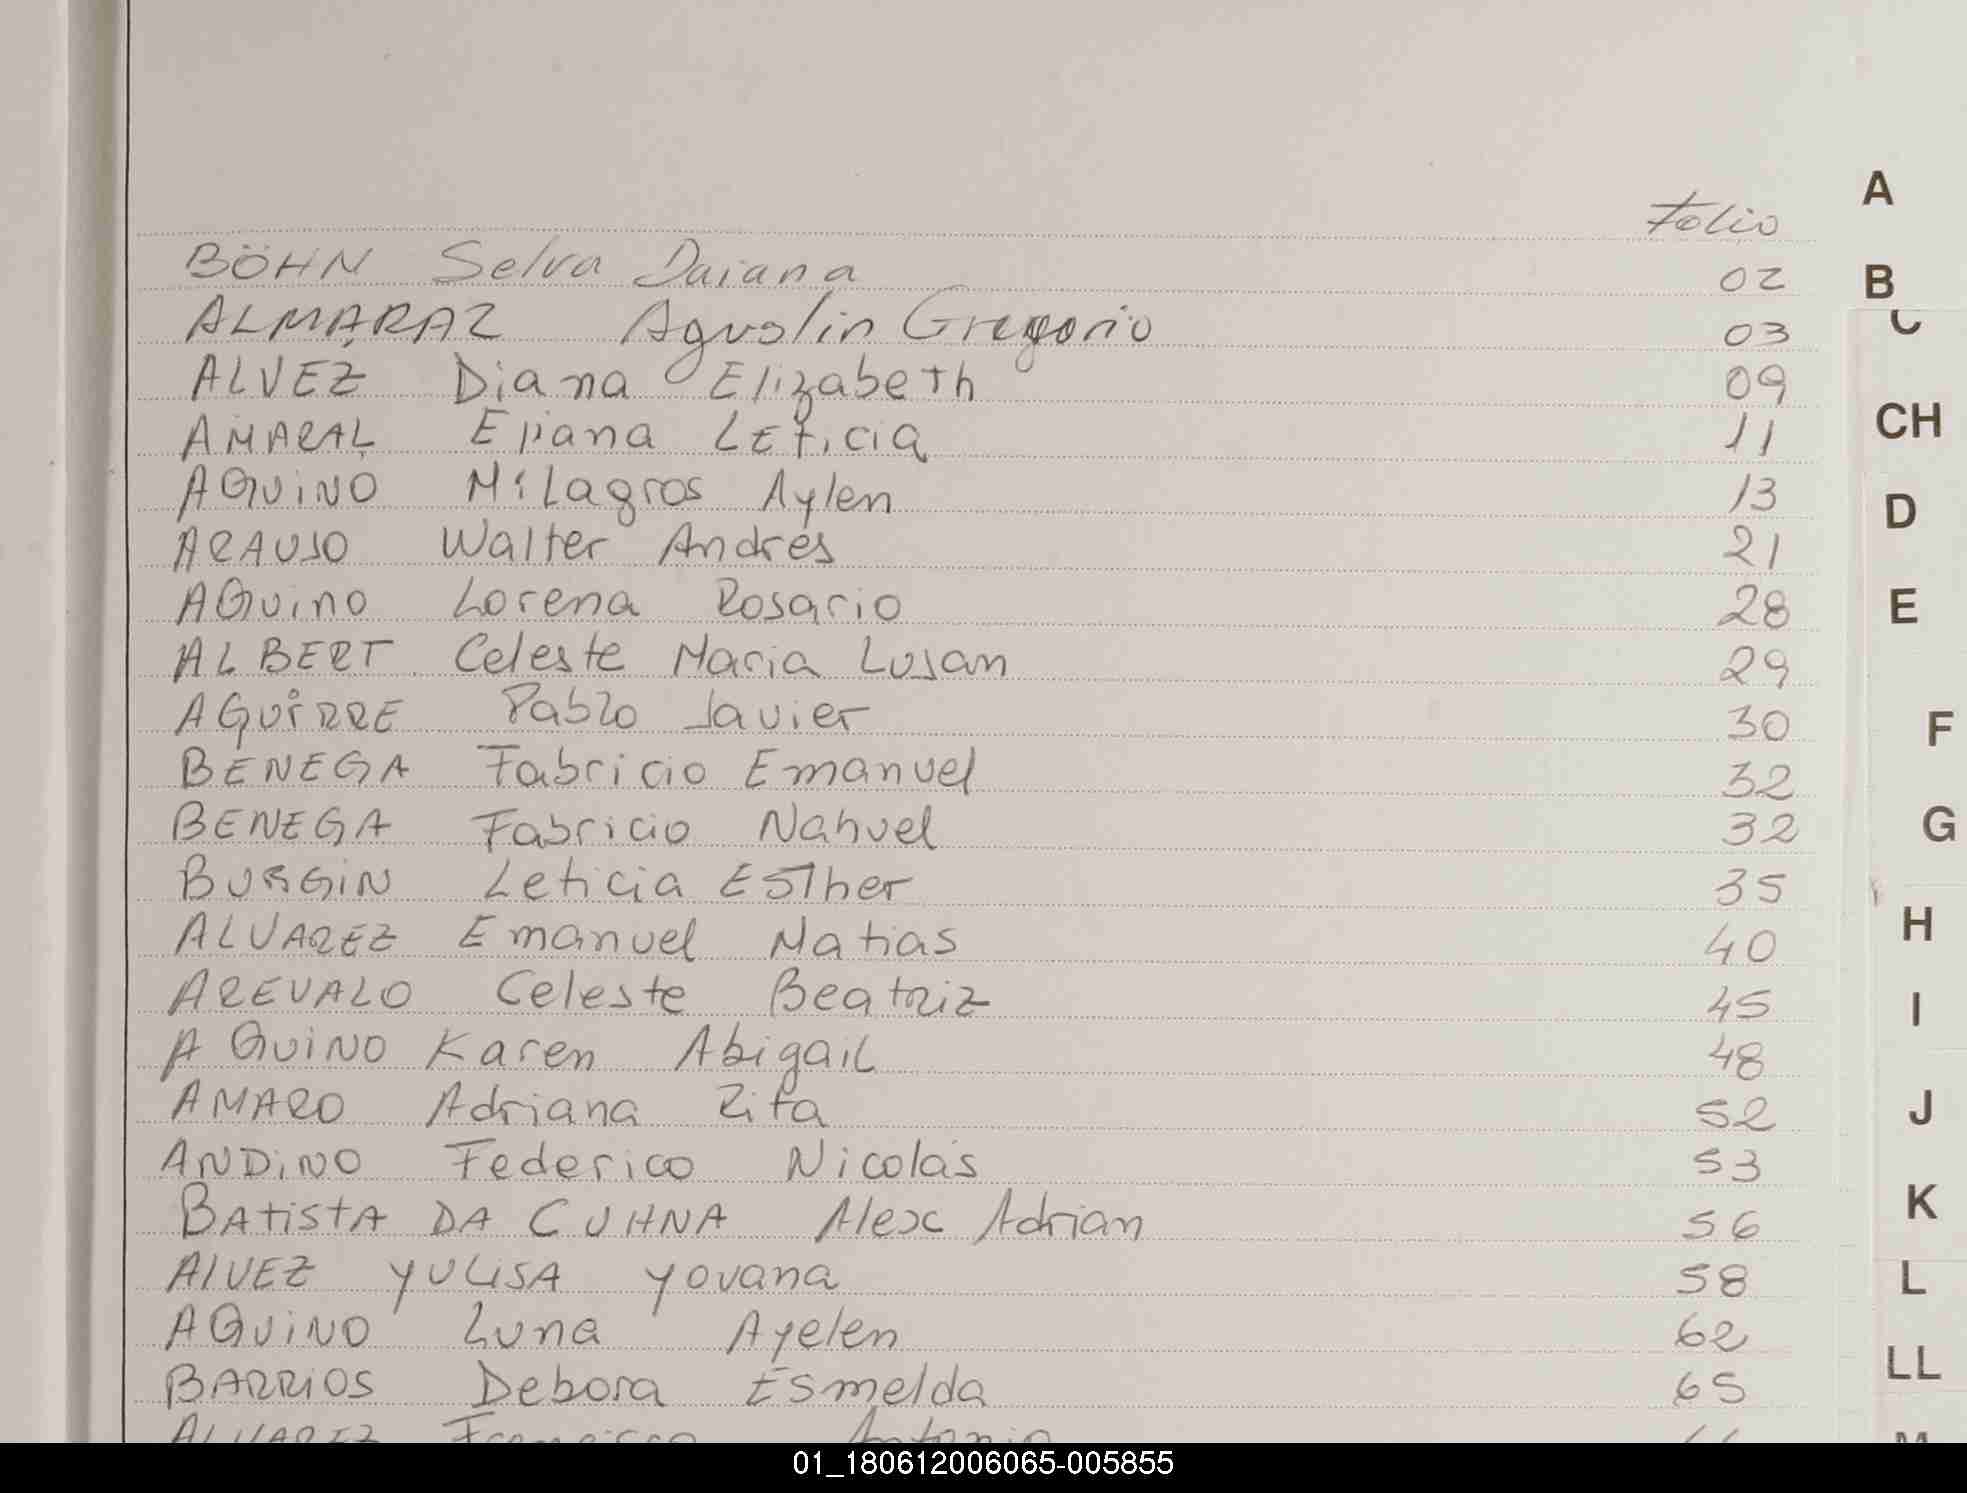 Folio
BÖHN Selva Daiana 02
ALMARAZ Agustin Gregorio 03
ALVEZ Diana Elizabeth 09
AMARAL Eliana LEticia 11
AQUINO Milagros Aylen 13
ARAUJO Walter Andres 21
AQUINO Lorena Rosario 28
ALBERT Celeste Maria Lujan 29
AGUIRRE Pablo Javier 30
BENEGA Fabricio Emanuel 32
BENEGA Fabricio Nahuel 32
BURGIN Leticia ESTher 35
ALVAREZ Emanuel Matias 40
AREVALO Celeste Beatriz 45
AQUINO Karen Abigail 48
AMARO Adriana Rita 52
ANDINO Federico Nicolás 53
BAtistA DA CUHNA Alex Adrian 56
AlVEZ YULISA Yovana 58
AQUINO Luna Ayelen 62
BARRIOS Debora Esmelda 65
ALVAREZ Francisco Antonio
A
B
C
CH
D
E
F
G
H
I
J
K
L
LL
M
01_180612006065-005855